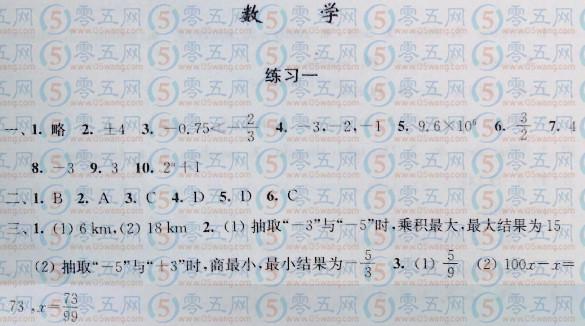 数 学
练习一
一、1. 略 2. ±4 3. －0.75＜－2/3 4. －3,－2,－1 5. 9.6×10⁶ 6. 3/2 7. 4
8. －3 9. 3 10. 2ⁿ＋1
二、1. B 2. A 3. C 4. D 5. D 6. C
三、1. (1) 6 km,(2) 18 km 2. (1) 抽取“－3”与“－5”时,乘积最大,最大结果为 15
(2) 抽取“－5”与“＋3”时,商最小,最小结果为－5/3 3. (1) 5/9 (2) 100x－x＝
73,x＝73/99
零五网
www.05wang.com